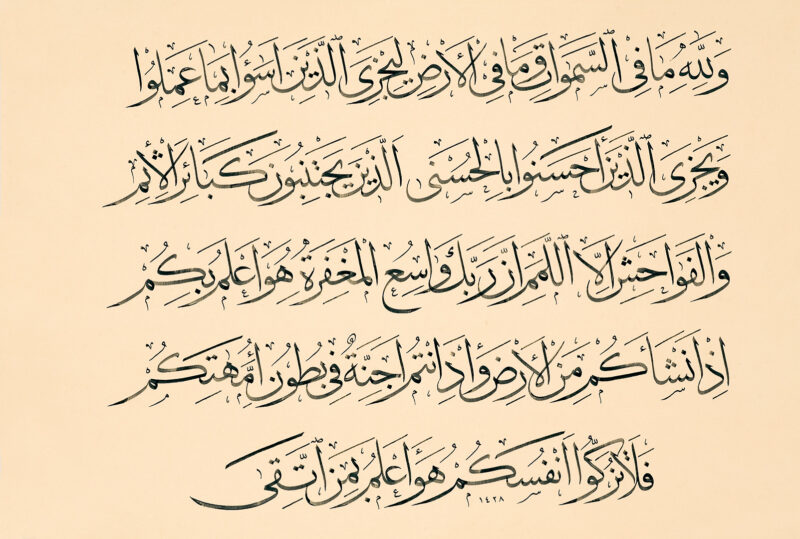 وَلِلّٰهِ مَا فِى السَّمٰوَاتِ وَمَا فِى الْاَرْضِ لِيَجْزِىَ الَّذِيْنَ اَسٰٓؤُا بِمَا عَمِلُوا
وَيَجْزِىَ الَّذِيْنَ اَحْسَنُوا بِالْحُسْنٰى اَلَّذِيْنَ يَجْتَنِبُونَ كَبَائِرَ الْاِثْمِ
وَالْفَوَاحِشَ اِلَّا اللَّمَمَ اِنَّ رَبَّكَ وَاسِعُ الْمَغْفِرَةِ هُوَ اَعْلَمُ بِكُمْ
اِذْ اَنْشَاَكُمْ مِنَ الْاَرْضِ وَاِذْ اَنْتُمْ اَجِنَّةٌ فِى بُطُونِ اُمَّهٰتِكُمْ
فَلَا تُزَكُّوا اَنْفُسَكُمْ هُوَ اَعْلَمُ بِمَنِ اتَّقٰى
١٤٢٨